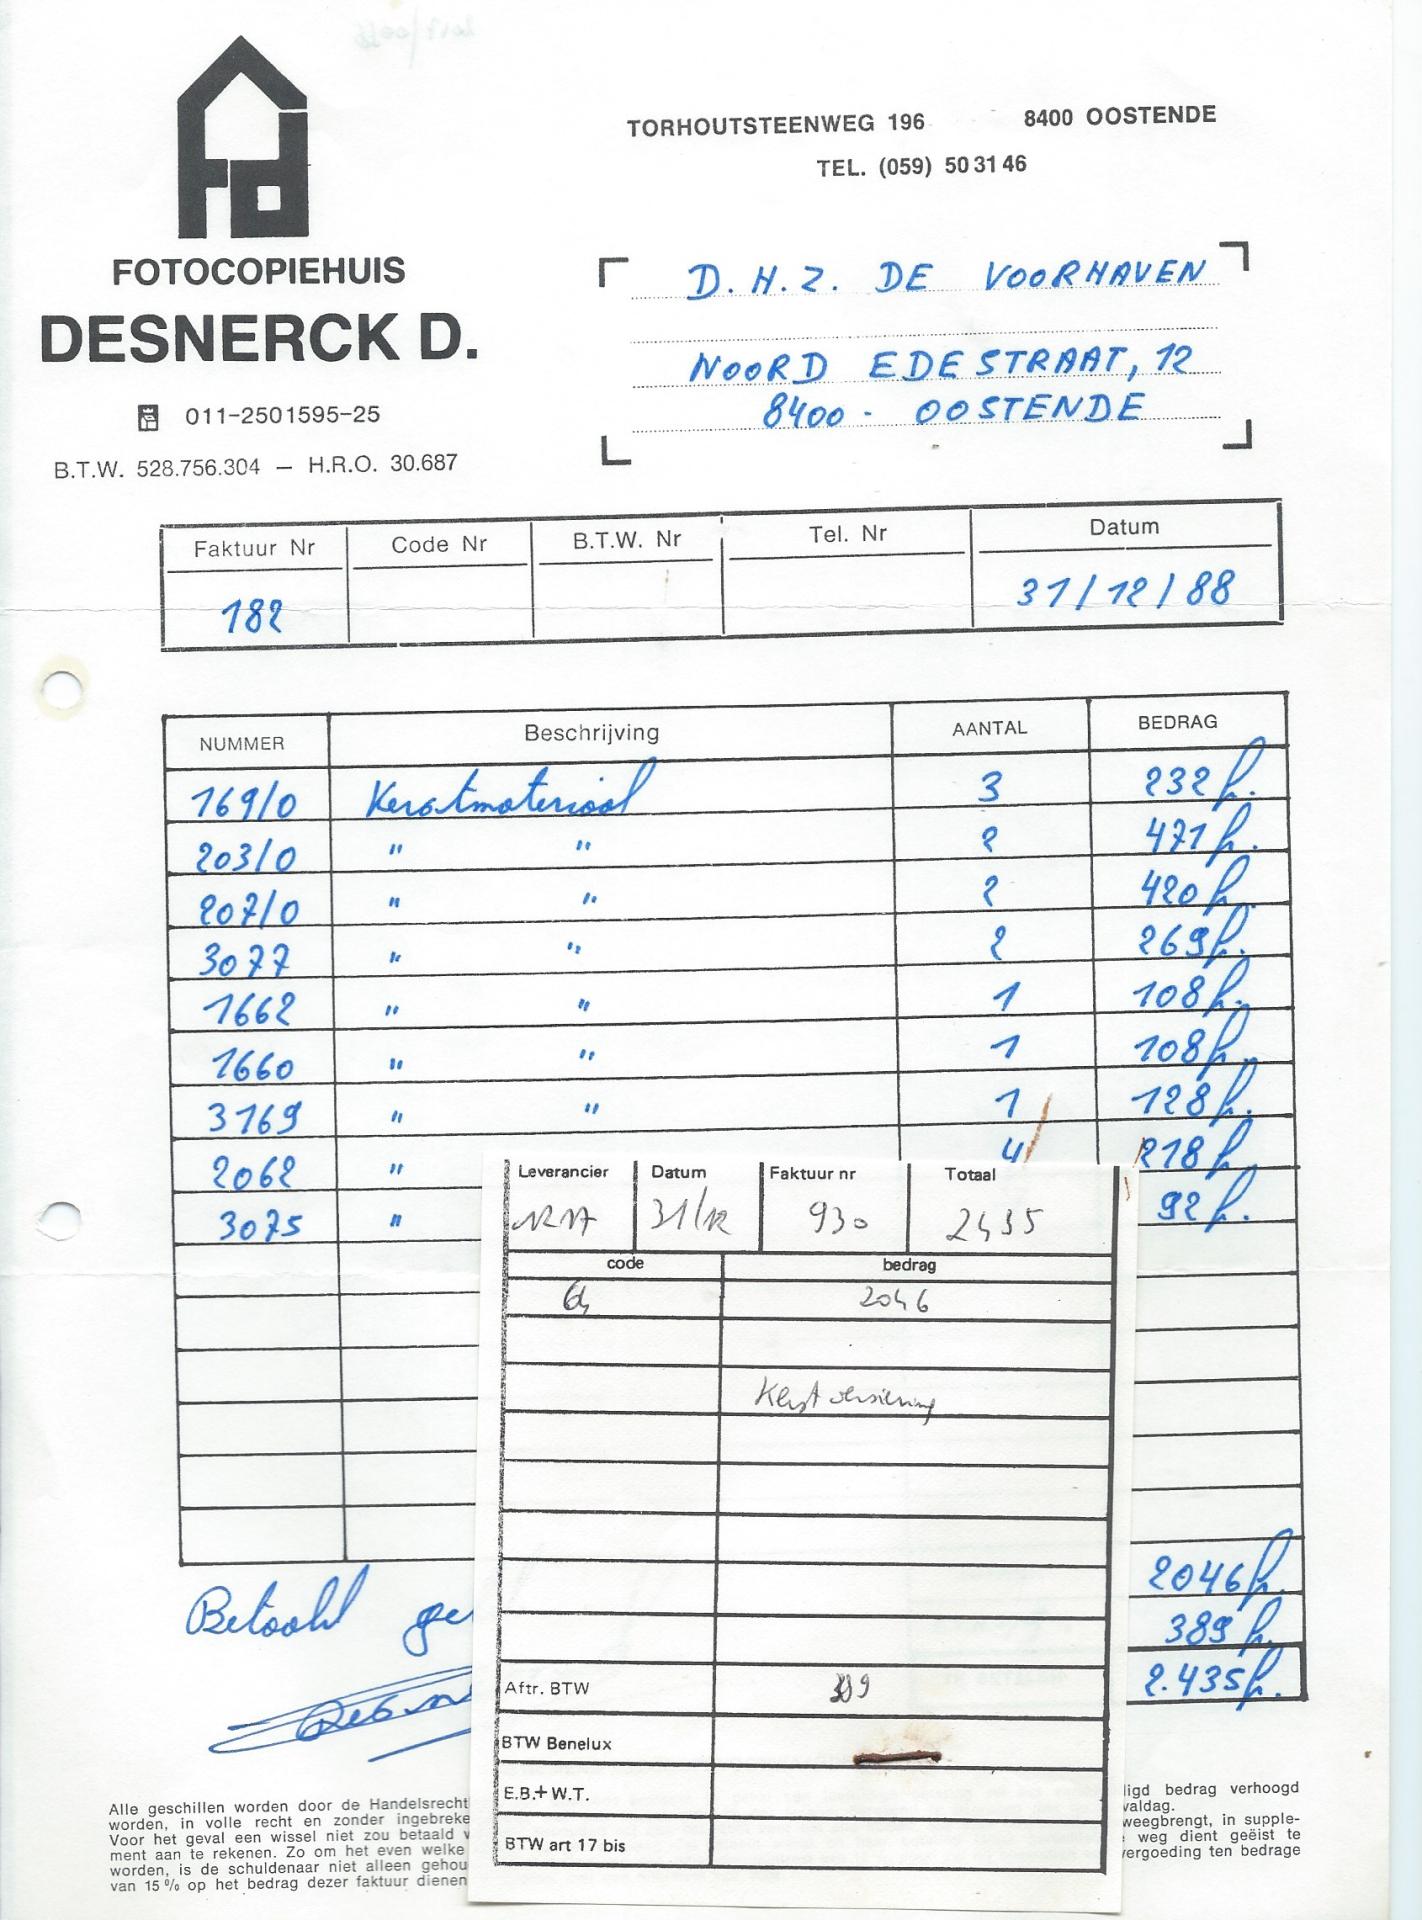 TORHOUTSTEENWEG 196 8400 OOSTENDE
TEL. (059) 50 31 46
FOTOCOPIEHUIS
DESNERCK D.
011-2501595-25
B.T.W. 528.756.304 — H.R.O. 30.687
D.H.Z. DE VOORHAVEN
NOORD EDESTRAAT, 12
8400 - OOSTENDE
Faktuur Nr Code Nr B.T.W. Nr Tel. Nr Datum
182 31/12/88
NUMMER Beschrijving AANTAL BEDRAG
169/0 Kerstmateriaal 3 232 fr.
203/0 " " 2 471 fr.
207/0 " " 2 420 fr.
3077 " " 2 269 fr.
1662 " " 1 108 fr.
1660 " " 1 108 fr.
3169 " " 1 128 fr.
2062 " 4 218 fr.
3075 " 92 fr.
2046 fr.
389 fr.
2.435 fr.
Betaald
Leverancier Datum Faktuur nr Totaal
31/12 930 2435
code bedrag
64 2046
Kerstversiering
Aftr. BTW 389
BTW Benelux
E.B.+ W.T.
BTW art 17 bis
Alle geschillen worden door de Handelsrecht
worden, in volle recht en zonder ingebreke
Voor het geval een wissel niet zou betaald
ment aan te rekenen. Zo om het even welke
worden, is de schuldenaar niet alleen gehou
van 15 % op het bedrag dezer faktuur dienen
ligd bedrag verhoogd
valdag.
weegbrengt, in supple-
weg dient geëist te
vergoeding ten bedrage